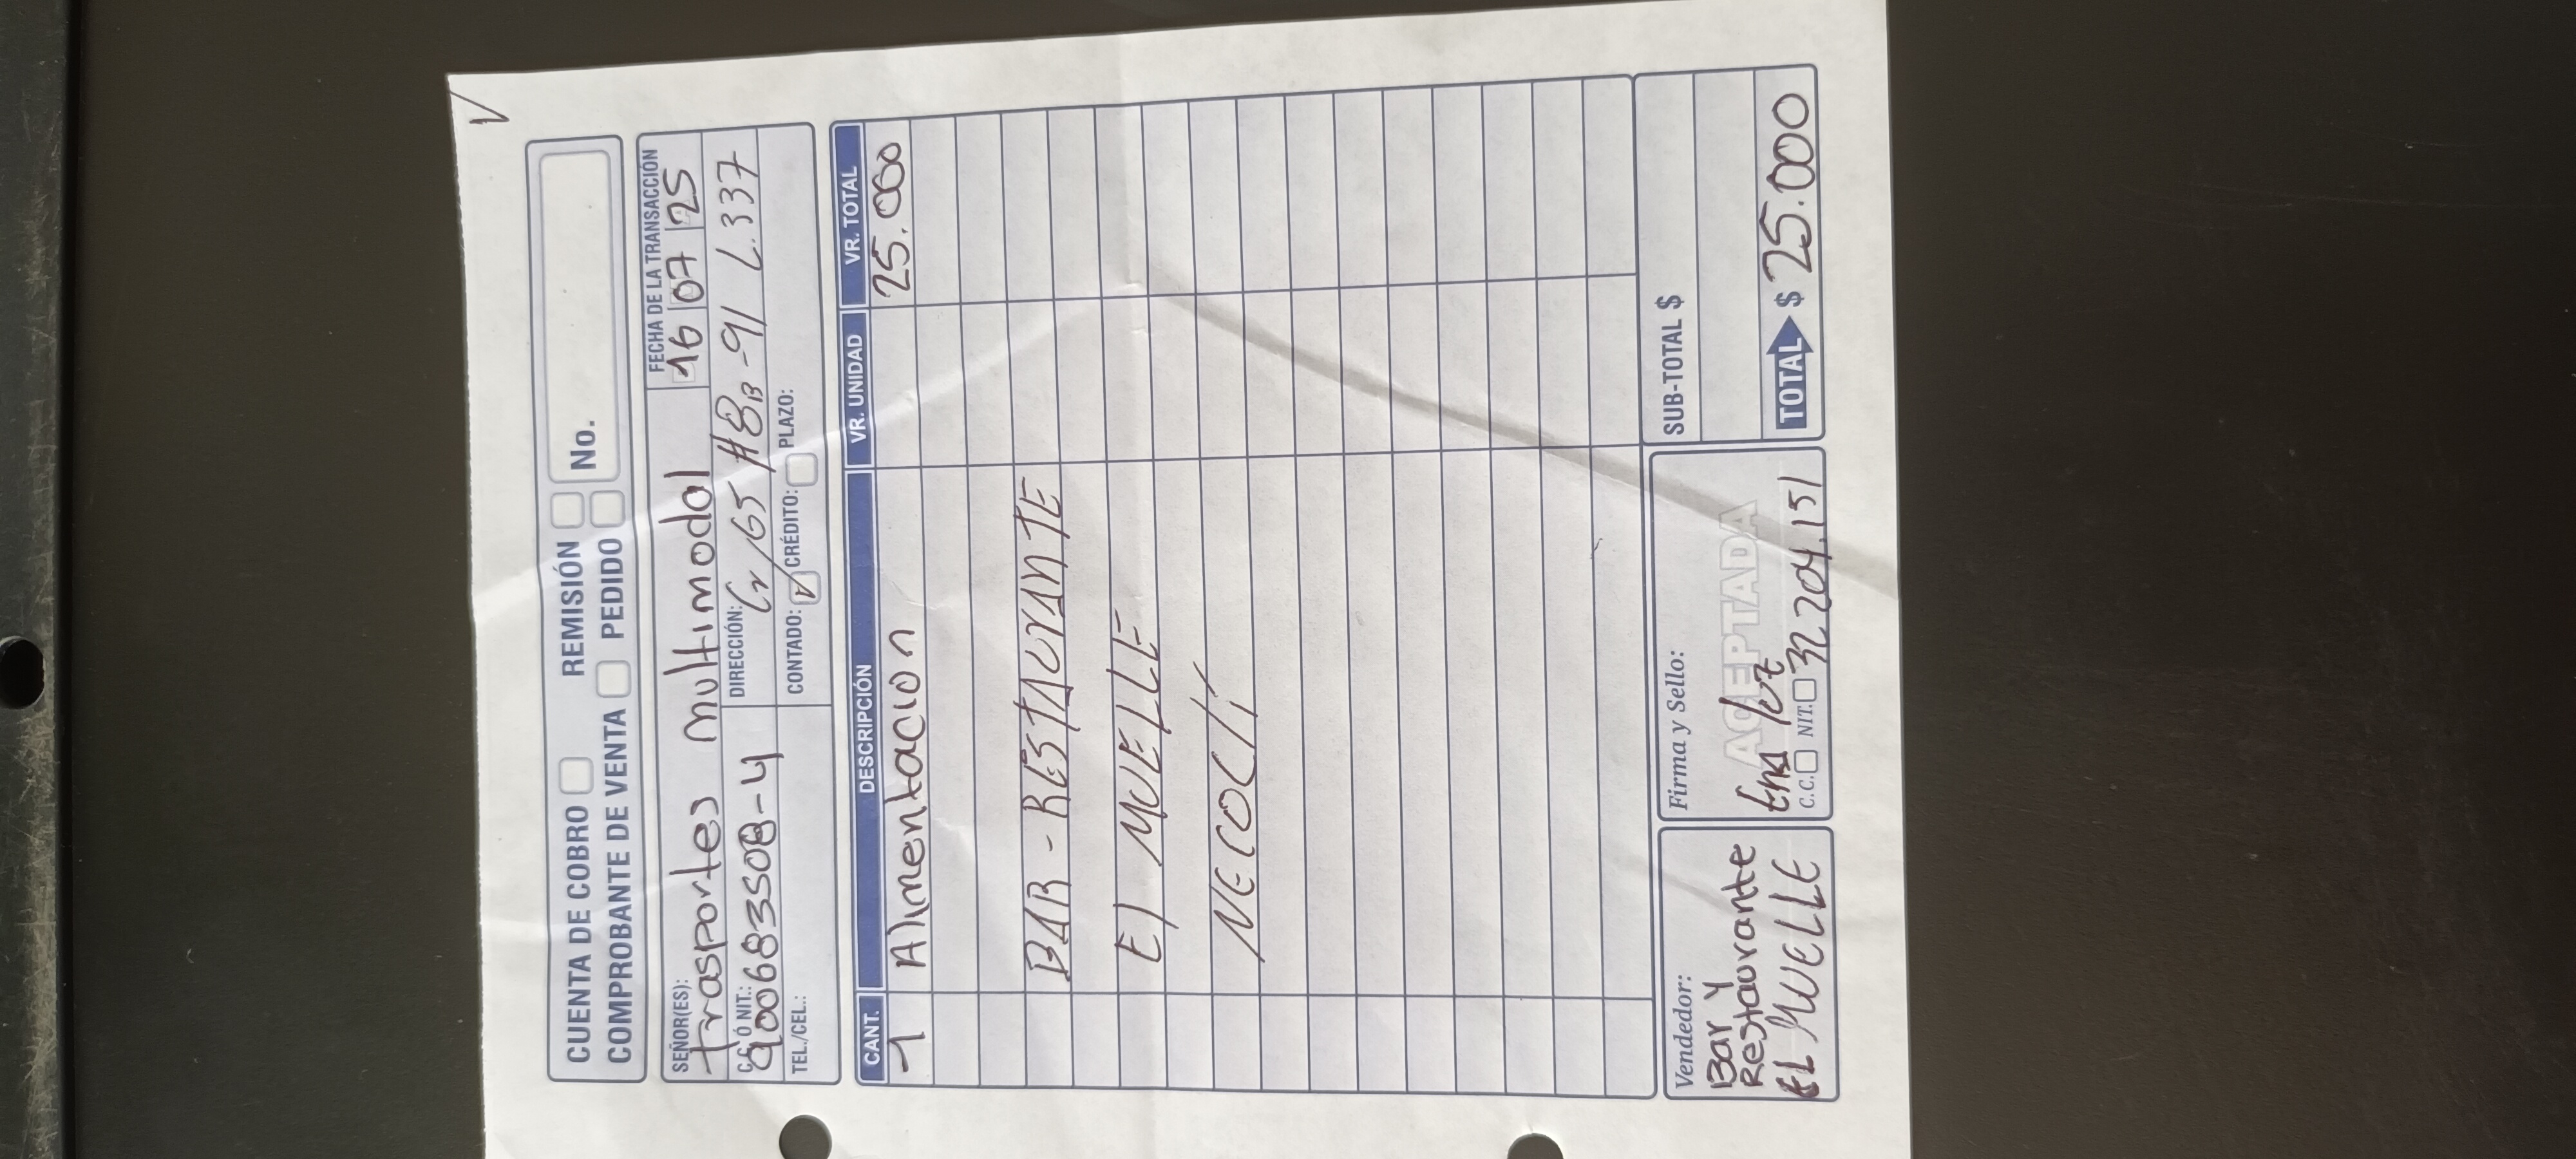 CUENTA DE COBRO REMISIÓN
COMPROBANTE DE VENTA PEDIDO No.
SEÑOR(ES): FECHA DE LA TRANSACCIÓN
trasportes multimodal 16 07 25
C.C. Ó NIT.: DIRECCIÓN:
900683508-4 Cr 65 #8B-91 L.337
TEL./CEL.: CONTADO: CRÉDITO: PLAZO:
CANT. DESCRIPCIÓN VR. UNIDAD VR. TOTAL
1 Alimentacion 25.000
BAR - RESTAURANTE
El MUELLE
NECOCLÍ
Vendedor: Firma y Sello: SUB-TOTAL $
Bar y
Restaurante
EL MUELLE
ACEPTADA
luz
C.C. NIT. 32204151
TOTAL $ 25.000